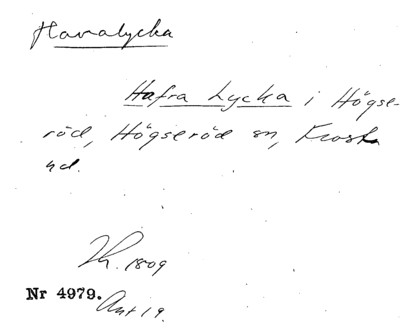 Havalycka
Hafra Lycka i Högse-
röd, Högseröd sn, Frosta
hd.
Th. 1809
Nr 4979.
Ant 19.